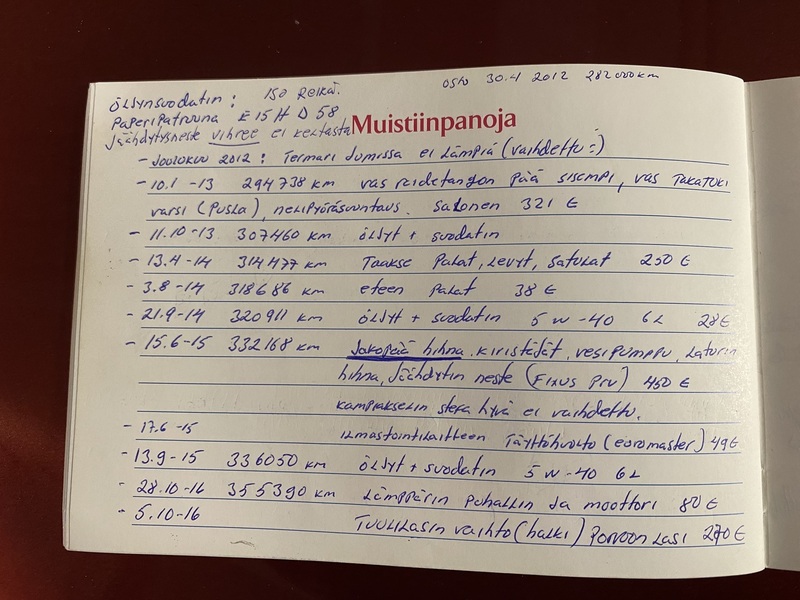 osto 30.4 2012 282000km
öljynsuodatin: iso reikä.
Paperipatruuna E15H D58
Jäähdytysneste vihree ei keltasta
Muistiinpanoja
- Joulokuu 2012: Termari Jumissa ei lämpiä (vaihdettu :)
- 10.1 -13 294738 km vas raidetangon pää sisempi, vas takatuki
varsi (Pusla), nelipyöräsuuntaus. Salonen 321 €
- 11.10-13 307460 km öljyt + suodatin
- 13.4-14 314477 km Taakse Palat, Levyt, Satulat 250 €
- 3.8-14 318686 km eteen palat 38 €
- 21.9-14 320911 km öljyt + suodatin 5w-40 6L 28€
- 15.6-15 332168 km Jakopää hihna, kiristäjät, vesipumppu, Laturin
hihna, Jäähdytin neste (Fixus Prv) 450 €
kampiakselin stefa hyvä ei vaihdettu.
- 17.6-15 ilmastointilaitteen Täyttöhuolto (euromaster) 49€
- 13.9-15 336050 km öljyt + suodatin 5w-40 6L
- 28.10-16 355390 km Lämppärin Puhallin Ja moottori 80 €
- 5.10-16 Tuulilasin vaihto (halki) Porvoon Lasi 270 €